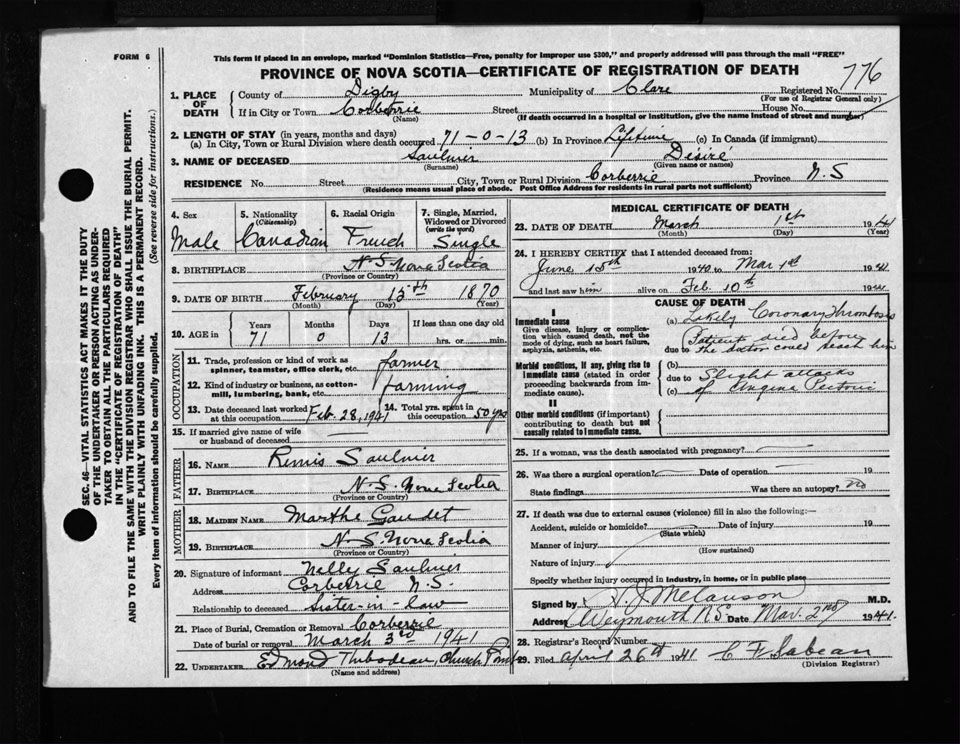 FORM 6
This form if placed in an envelope, marked "Dominion Statistics—Free, penalty for improper use $300," and properly addressed will pass through the mail "FREE"
PROVINCE OF NOVA SCOTIA—CERTIFICATE OF REGISTRATION OF DEATH
776
1. PLACE OF DEATH
County of Digby Municipality of Clare Registered No.
(For use of Registrar General only)
If in City or Town Corberrie Street House No.
(Name) (If death occurred in a hospital or institution, give the name instead of street and number)
2. LENGTH OF STAY (in years, months and days)
(a) In City, Town or Rural Division where death occurred 71-0-13 (b) In Province Lifetime (c) In Canada (if immigrant)
3. NAME OF DECEASED Saulnier Désiré
(Surname) (Given name or names)
RESIDENCE No. Street City, Town or Rural Division Corberrie Province N.S
(Residence means usual place of abode. Post Office Address for residents in rural parts not sufficient)
4. Sex Male
5. Nationality (Citizenship) Canadian
6. Racial Origin French
7. Single, Married, Widowed or Divorced (write the word) Single
8. BIRTHPLACE N.S. Nova Scotia
(Province or Country)
9. DATE OF BIRTH February 15th 1870
(Month) (Day) (Year)
10. AGE in Years Months Days If less than one day old
71 0 13 hrs. or min.
OCCUPATION
11. Trade, profession or kind of work as spinner, teamster, office clerk, etc. farmer
12. Kind of industry or business, as cotton-mill, lumbering, bank, etc. farming
13. Date deceased last worked at this occupation Feb. 28, 1941 14. Total yrs. spent in this occupation 50 yrs
15. If married give name of wife or husband of deceased —
FATHER
16. NAME Remis Saulnier
17. BIRTHPLACE N.S. Nova Scotia
(Province or Country)
MOTHER
18. MAIDEN NAME Marthe Gaudet
19. BIRTHPLACE N.S. Nova Scotia
(Province or Country)
20. Signature of informant Nelly Saulnier
Address Corberrie N.S.
Relationship to deceased Sister-in-law
21. Place of Burial, Cremation or Removal Corberrie
Date of burial or removal March 3rd 1941
22. UNDERTAKER Edmond Thibodeau Church Point
(Name and address)
MEDICAL CERTIFICATE OF DEATH
23. DATE OF DEATH March 1st 1941
(Month) (Day) (Year)
24. I HEREBY CERTIFY that I attended deceased from:
June 15th 1940 to Mar 1st 1941
and last saw him alive on Feb. 10th 1941
CAUSE OF DEATH
I
Immediate cause
Give disease, injury or complication which caused death, not the mode of dying, such as heart failure, asphyxia, asthenia, etc.
(a) Likely Coronary Thrombosis
due to Patient died before the doctor could reach him
Morbid conditions, if any, giving rise to immediate cause (stated in order proceeding backwards from immediate cause).
(b)
due to Slight attacks
(c) of Angina Pectoris
II
Other morbid conditions (if important) contributing to death but not causally related to immediate cause.
25. If a woman, was the death associated with pregnancy? —
26. Was there a surgical operation? — Date of operation — 19
State findings Was there an autopsy? no
27. If death was due to external causes (violence) fill in also the following:—
Accident, suicide or homicide? Date of injury 19
(State which)
Manner of injury
(How sustained)
Nature of injury
Specify whether injury occurred in industry, in home, or in public place
Signed by Melanson M.D.
Address Weymouth N.S. Date Mar. 2nd 1941.
28. Registrar's Record Number
29. Filed April 26th 1941 C F Sabean
(Division Registrar)
SEC. 46—VITAL STATISTICS ACT MAKES IT THE DUTY
OF THE UNDERTAKER OR PERSON ACTING AS UNDER-
TAKER TO OBTAIN ALL THE PARTICULARS REQUIRED
IN THE "CERTIFICATE OF REGISTRATION OF DEATH"
AND TO FILE THE SAME WITH THE DIVISION REGISTRAR WHO SHALL ISSUE THE BURIAL PERMIT.
WRITE PLAINLY WITH UNFADING INK. THIS IS A PERMANENT RECORD.
Every item of information should be carefully supplied. (See reverse side for instructions.)